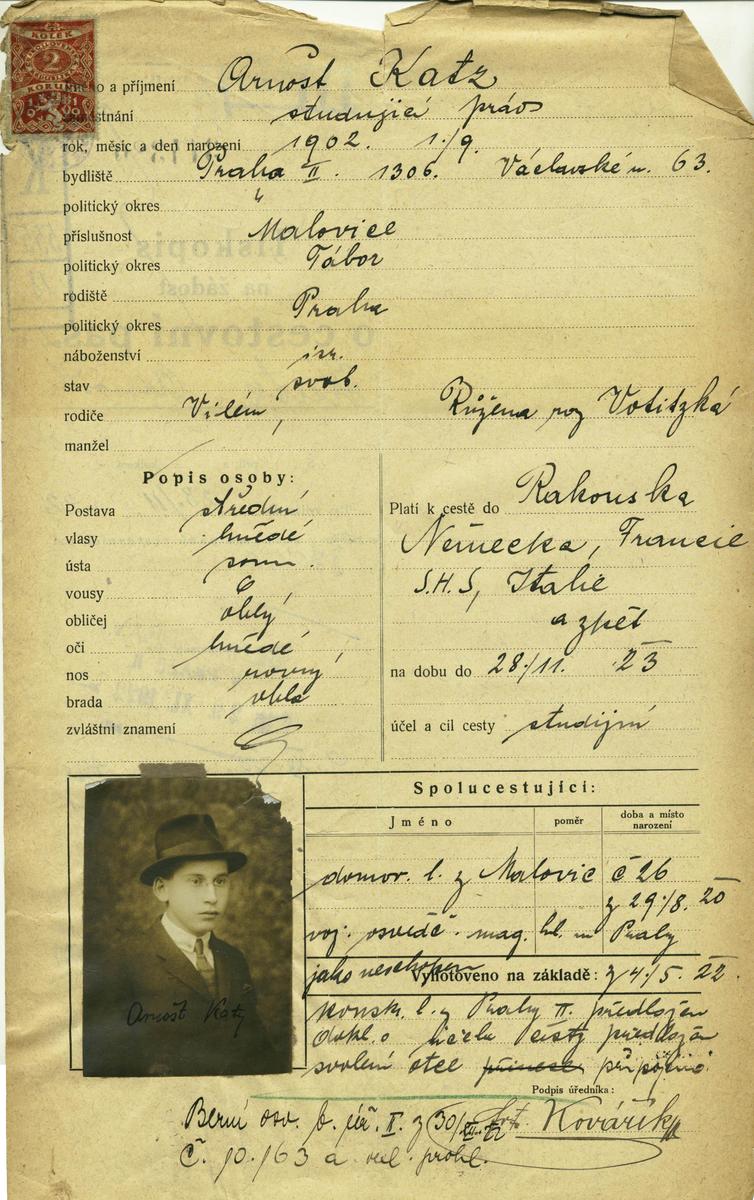 KOLEK
2
KORUNY
o a příjmení Arnošt Katz
studující práv
rok, měsíc a den narození 1902. 1./9.
bydliště Praha II. 1306. Václavské n. 63.
politický okres "
příslušnost Malovice
politický okres Tábor
rodiště Praha
politický okres
náboženství isr.
stav svob.
rodiče Vilém, Růžena roz Votitzká
manžel
Popis osoby:
Postava střední
vlasy hnědé
ústa soum.
vousy
obličej oblý
oči hnědé
nos rovný
brada oblá
zvláštní znamení
Platí k cestě do Rakouska
Německa, Francie
S.H.S, Italie
a zpět
na dobu do 28./11. 23
účel a cíl cesty studijní
Spolucestující:
Jméno poměr doba a místo
narození
domov. l. z Malovic č 26
z 29./8. 20
voj. osvědč. mag. hl. m Prahy
jako neschopen
Vyhotoveno na základě: z 4./5. 22.
konskr. l. z Prahy II. předložen
dokl. o účelu cesty předložen
svolení otce připojeno
Podpis úředníka:
Kovářík
Berní osv. b. II. z 30/
Č. 10163 a prohl.
Arnošt Katz